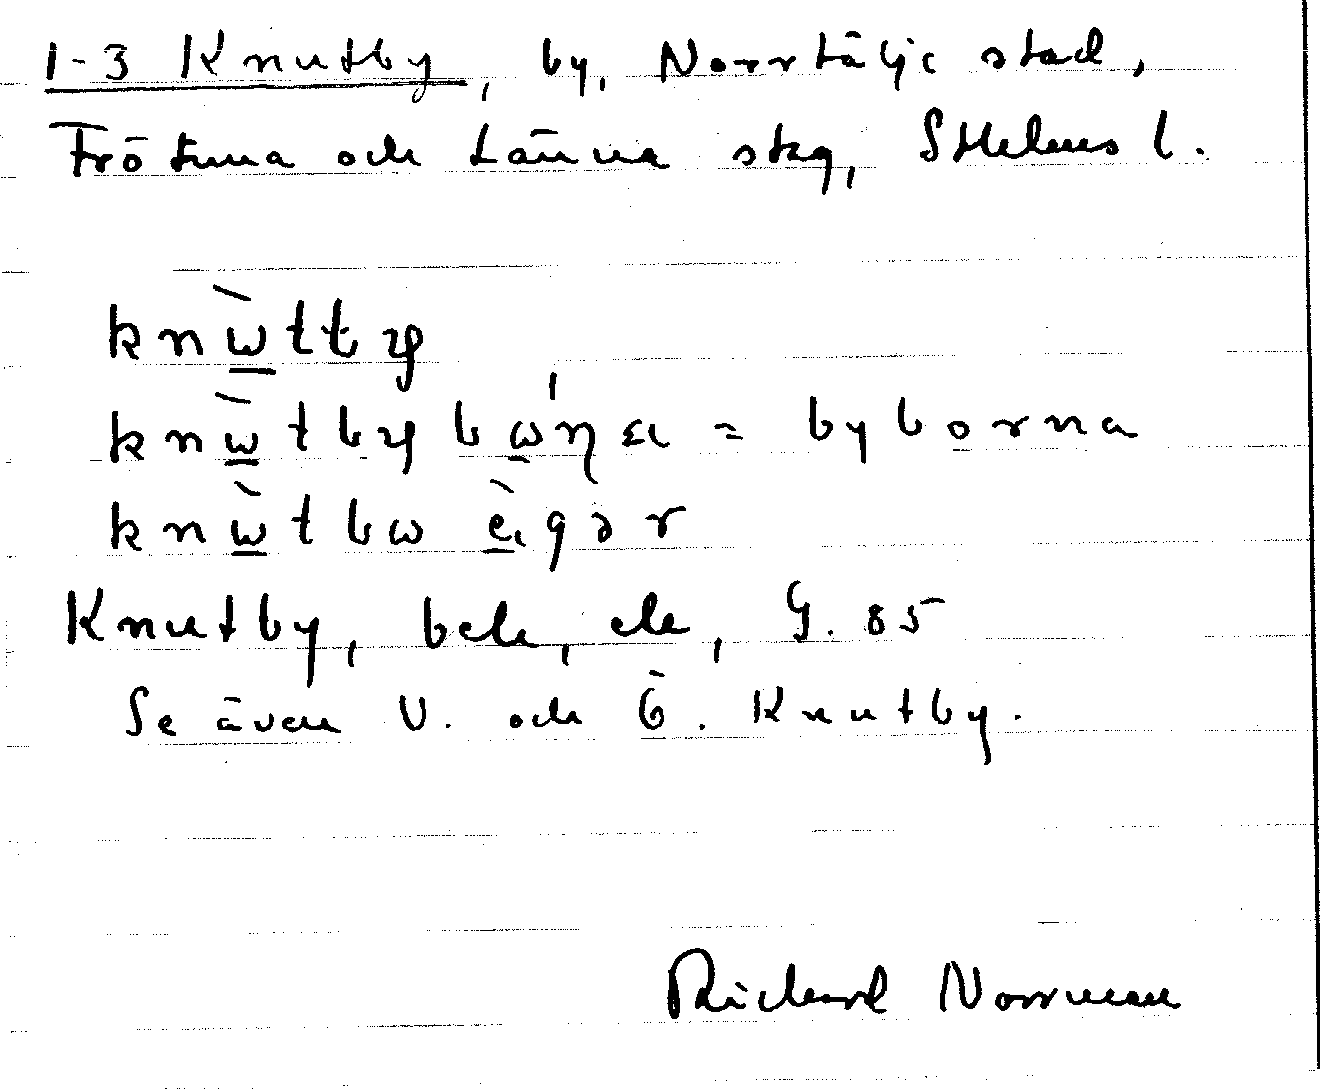 1-3 Knutby, by, Norrtälje stad,
Frötuna och Länna skg, Sthlms l.
knὼtty
knὼtby bωṇa = byborna
knὼtbω ägər
Knutby, bele, ele, G. 85
Se även V. och Ö. Knutby.
Richard Norrman